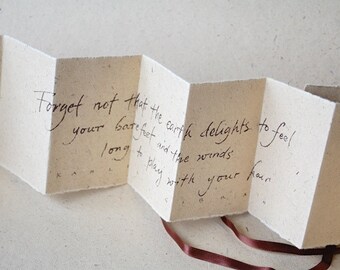 Forget not that the earth delights to feel
your barefeet and the winds
long to play with your hair